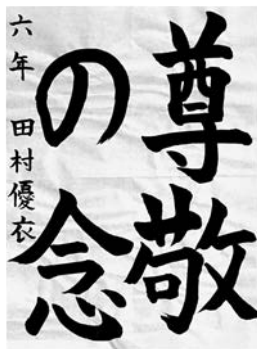 尊敬
の念
六年 田村優衣